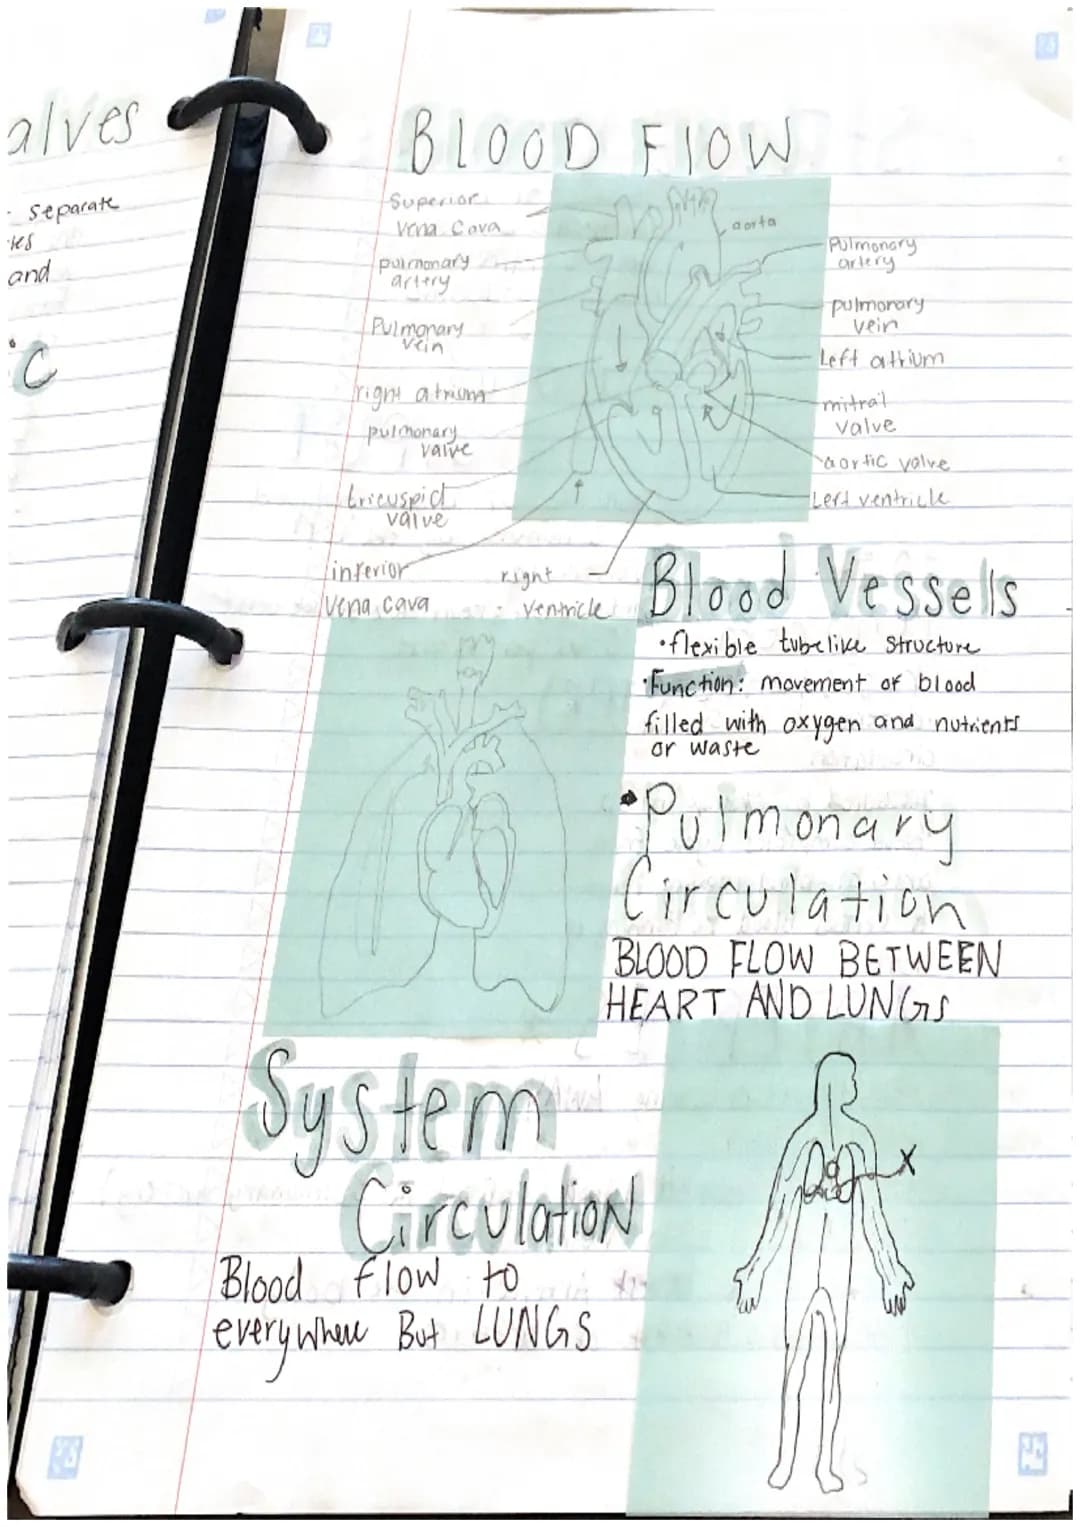 alves
- separate
tes
and
C
BLOOD FlOW
Superior
Vena Cava
pulmonary
artery
Pulmonary
vein
right atrium
pulmonary
valve
tricuspid
valve
inferior
Vena cava
right
ventricle
aorta
Pulmonary
artery
pulmonary
vein
Left atrium
mitral
valve
aortic valve
Left ventricle
Blood Vessells
•flexible tubelike structure
•Function: movement of blood
filled with oxygen and nutrients
or waste
•Pulmonary
Circulation
BLOOD FLOW BETWEEN
HEART AND LUNGS
System
Circulation
Blood flow to
everywhere But LUNGS
X